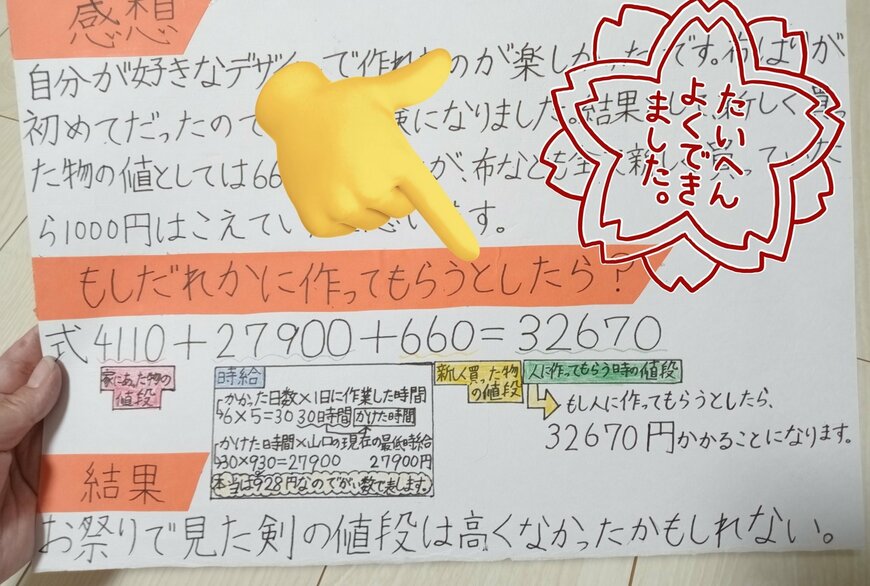 感想
自分が好きなデザインで作れ のが楽しかったです。布ばりが
初めてだったので になりました。結果 新しく買っ
た物の値としては66 が、布なども全 新し 買っていた
ら1000円はこえてい 思います。
たいへん
よくでき
ました。
もしだれかに作ってもらうとしたら?
式 4110+27900+660=32670
家にあった物の
値段
時給
かかった日数×1日に作業した時間
6×5=30 30時間 かけた時間
かけた時間×山口の現在の最低時給
30×930=27900 27900円
本当は928円なのでがい数で表します。
新しく買った物
の値段
人に作ってもらう時の値段
もし人に作ってもらうとしたら、
32670円かかることになります。
結果
お祭りで見た剣の値段は高くなかったかもしれない。